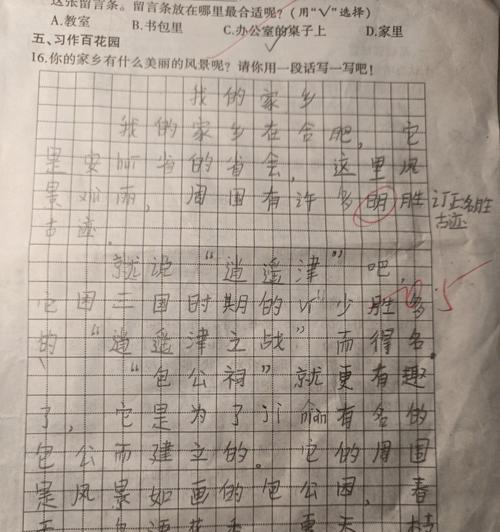 这张留言条。留言条放在哪里最合适呢?(用“√”选择)
A.教室 B.书包里 C.办公室的桌子上 D.家里
√
五、习作百花园
16.你的家乡有什么美丽的风景呢?请你用一段话写一写吧!
我的家乡
我的家乡在合肥,它
是安徽省的省会,这里风
景如画,周围有许多明胜
订正名胜
古迹.
古迹
就说“逍遥津”吧,
它因三国时期的以少胜多
的“逍遥津之战”而得名。
“包公祠”就更有趣
了,它是为了有名的
包公而建立的。它的周围
是风景如画的包公园,春